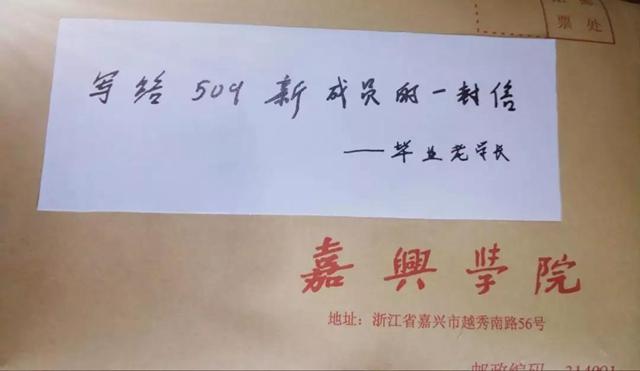 票处
写给509新成员的一封信
——毕业老学长
嘉興學院
地址：浙江省嘉兴市越秀南路56号
邮政编码 314001